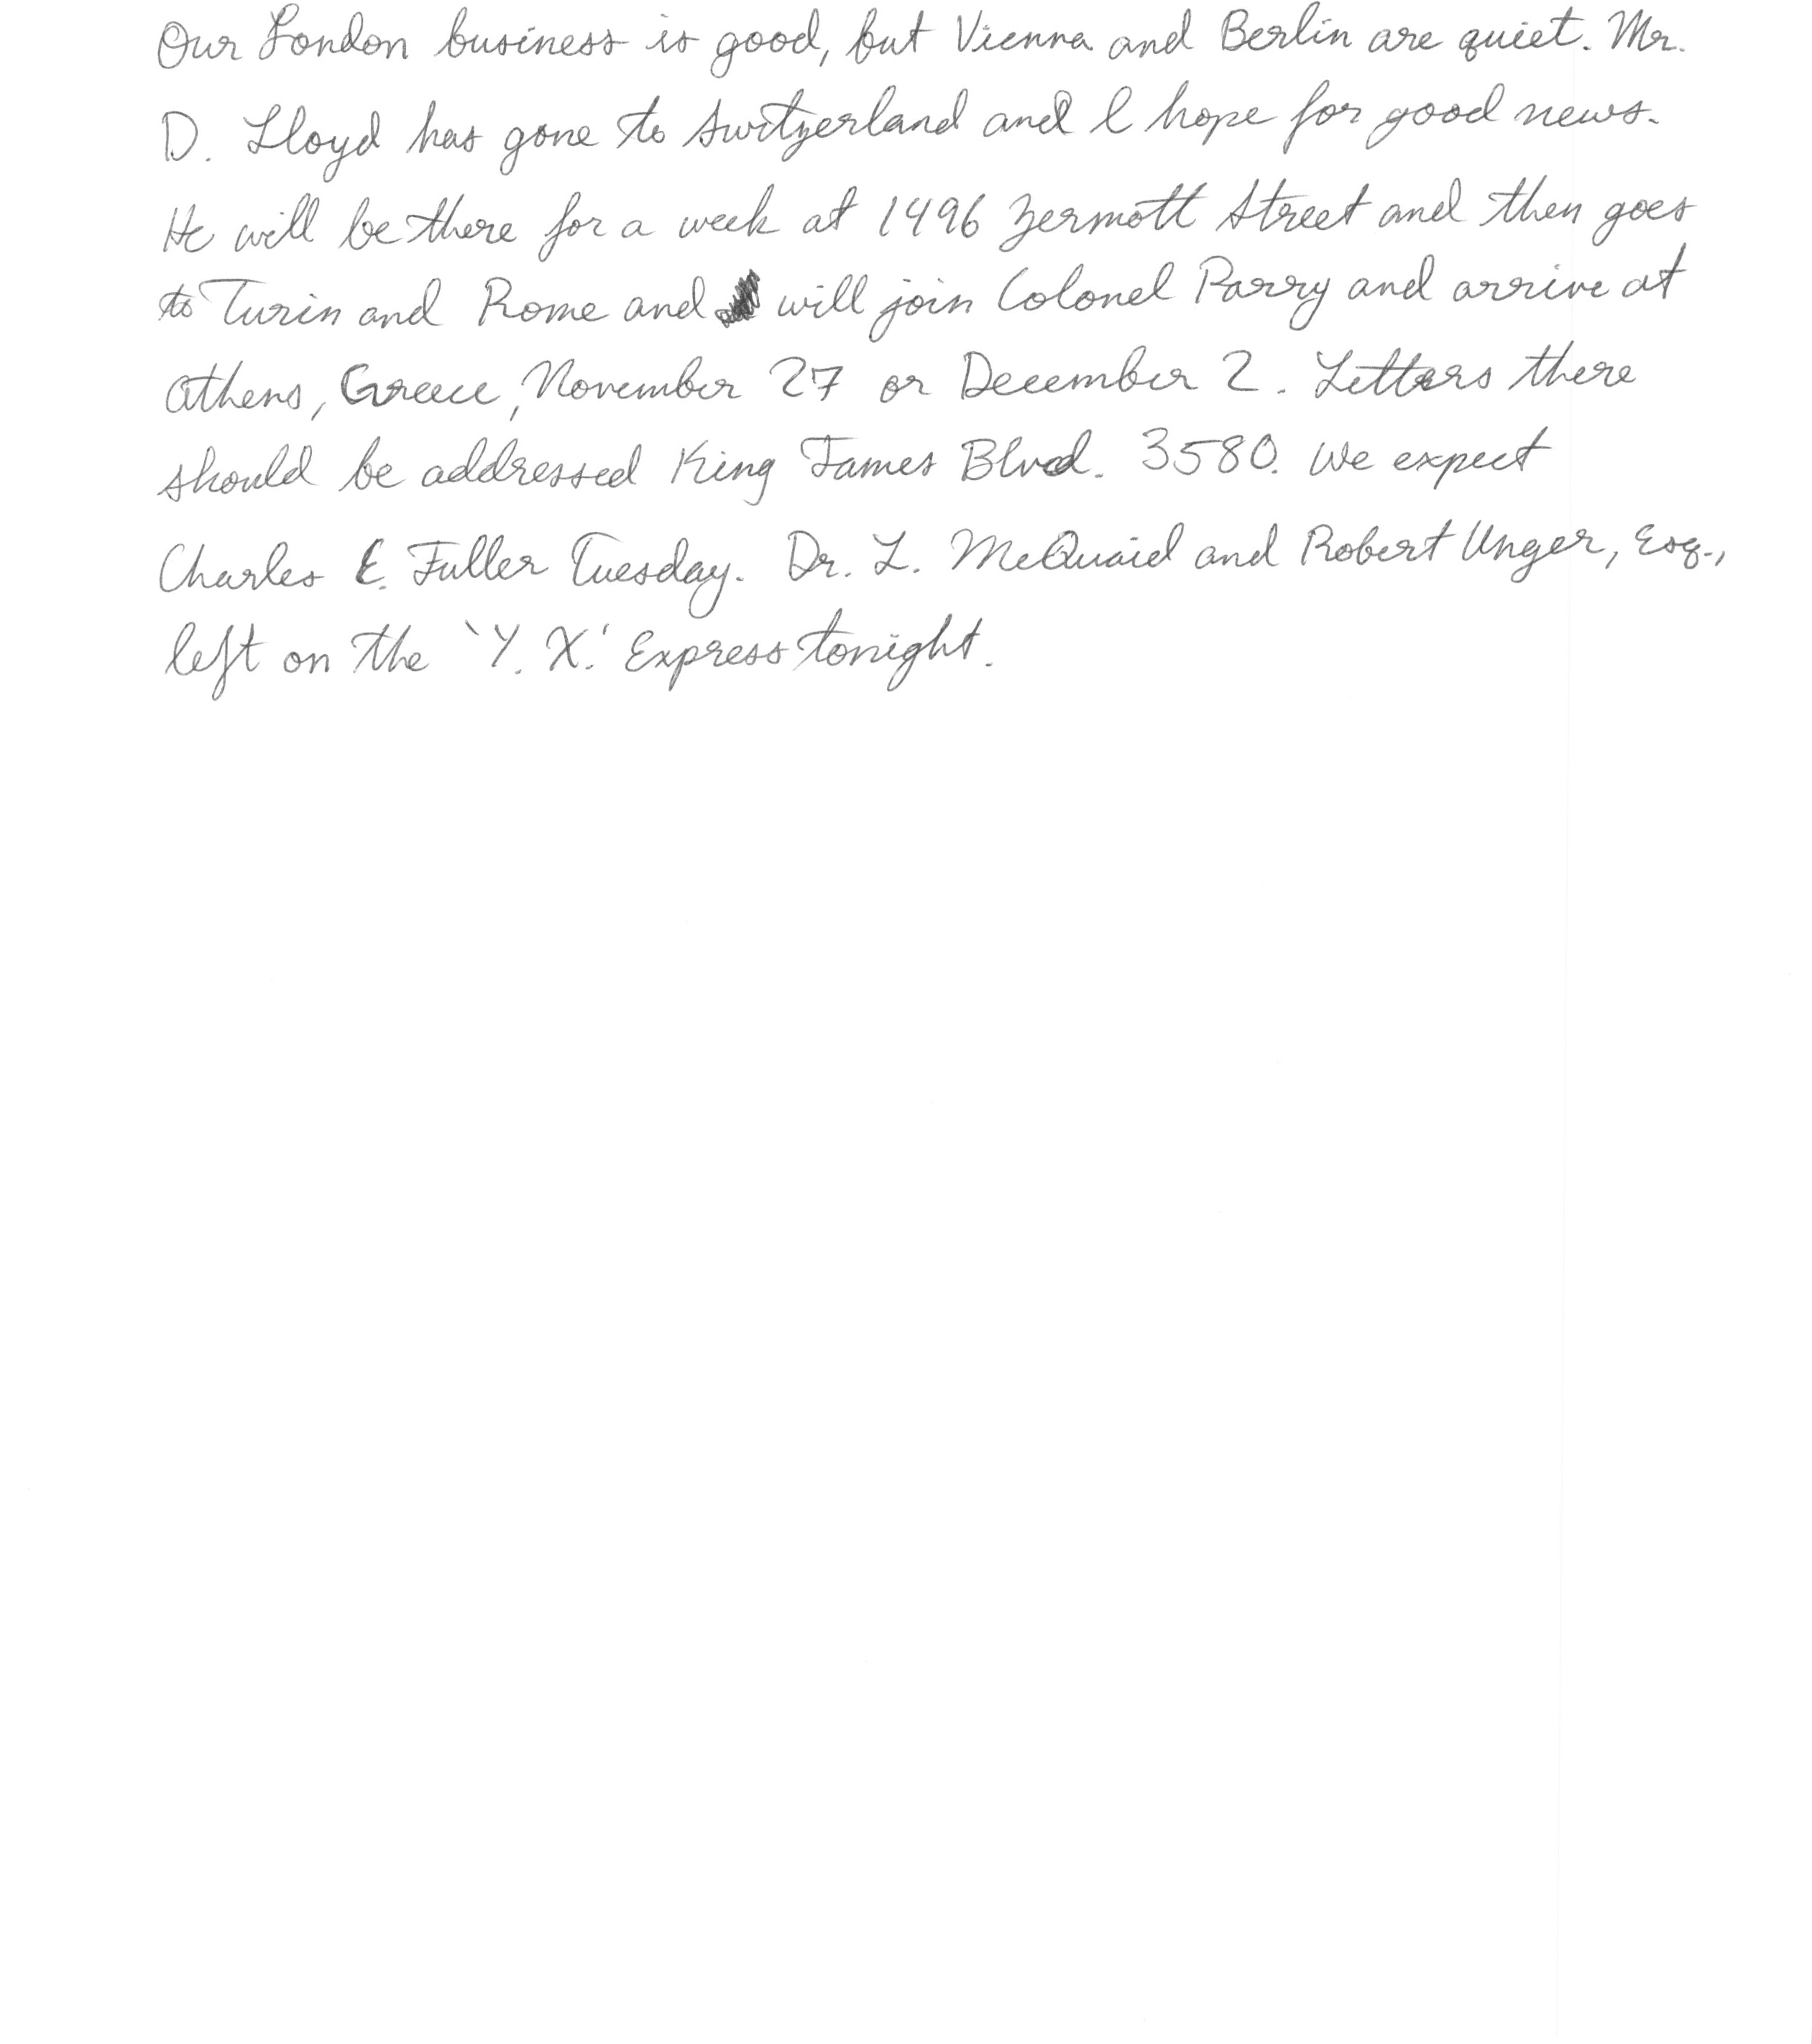 Our London business is good, but Vienna and Berlin are quiet. Mr.
D. Lloyd has gone to Switzerland and I hope for good news.
He will be there for a week at 1496 Zermott Street and then goes
to Turin and Rome and will join Colonel Parry and arrive at
Athens, Greece, November 27 or December 2. Letters there
should be addressed King James Blvd. 3580. We expect
Charles E. Fuller Tuesday. Dr. L. McQuaid and Robert Unger, Esq.,
left on the 'Y. X.' Express tonight.